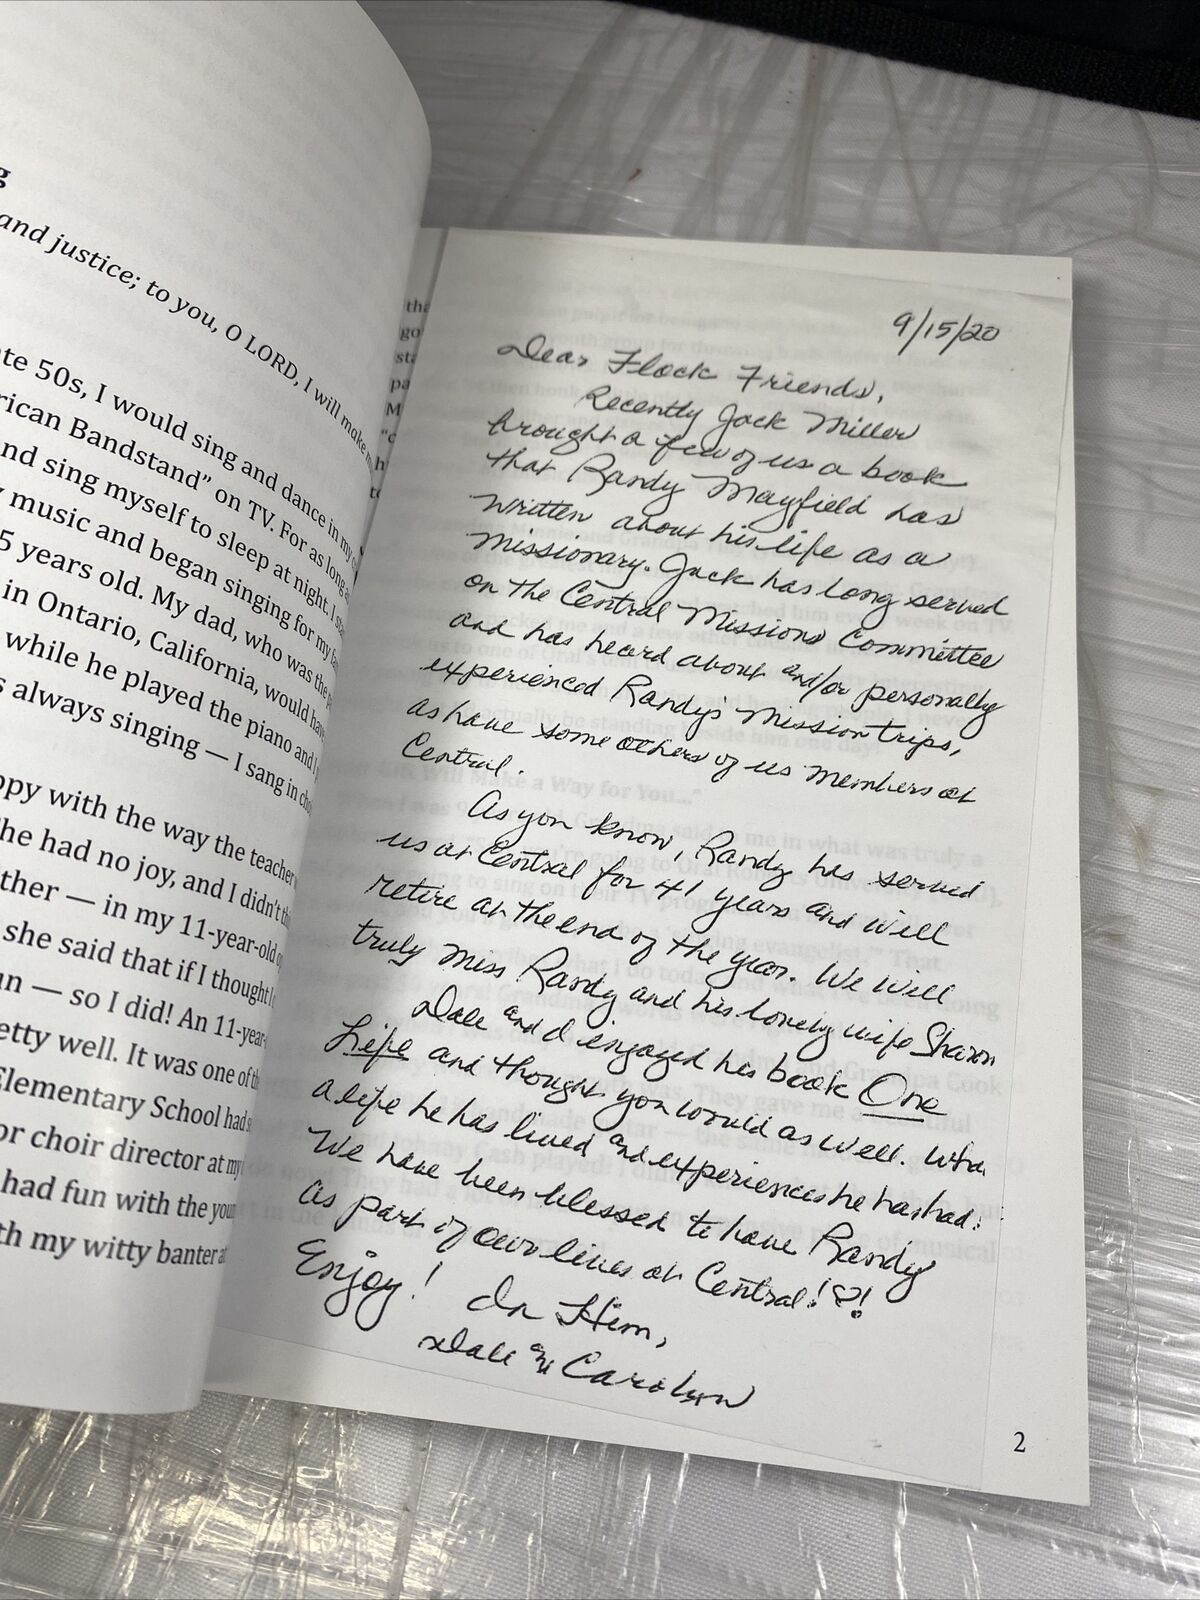 g
and justice; to you, O LORD, I will make
ate 50s, I would sing and dance in my
rican Bandstand" on TV. For as long
nd sing myself to sleep at night. I
music and began singing for my
5 years old. My dad, who was the
in Ontario, California, would have
while he played the piano and
s always singing — I sang in
ppy with the way the teacher
he had no joy, and I didn't
ther — in my 11-year-old
she said that if I thought
un — so I did! An 11-year-
etty well. It was one of
Elementary School had
or choir director at my
had fun with the
th my witty banter
tha
go
sta
pa
M
"c
h
to
9/15/20
Dear Flock Friends,
Recently Jack Miller
brought a few of us a book
that Randy Mayfield has
written about his life as a
missionary. Jack has long served
on the Central Missions Committee
and has heard about and/or personally
experienced Randy's mission trips,
as have some others of us members at
Central.
As you know, Randy has served
us at Central for 41 years and will
retire at the end of the year. We will
truly miss Randy and his lovely wife Sharon
Dale and I enjoyed his book One
Life and thought you would as well. Wha
a life he has lived and experiences he has had!
We have been blessed to have Randy
as part of our lives at Central! ♡!
Enjoy! In Him,
Dale and Carolyn
2